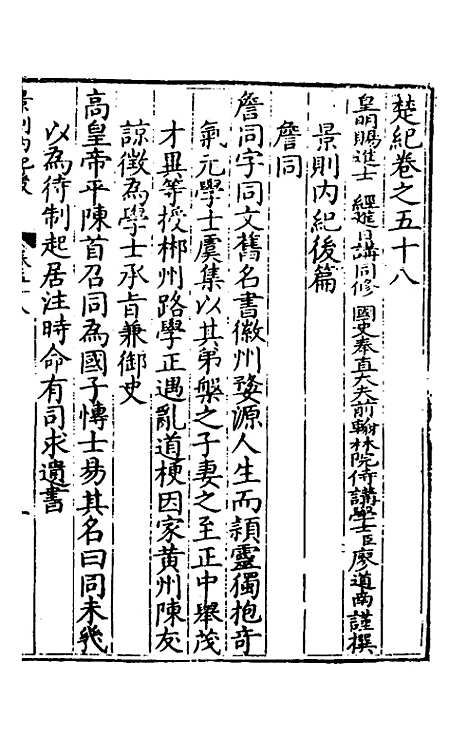 楚紀卷之五十八
皇明賜進士 經進日講同修 國史奉直大夫前翰林院侍講學士臣廖道南謹撰
景則內紀後篇
詹同
詹同字同文舊名書徽州婺源人生而穎靈獨抱奇
氣元學士虞集以其弟槃之子妻之至正中舉茂
才異等授郴州路學正遇亂道梗因家黃州陳友
諒徵為學士承旨兼御史
高皇帝平陳首召同為國子博士易其名曰同未幾
以為待制起居注時命有司求遺書
景則內紀後 卷五十八 一